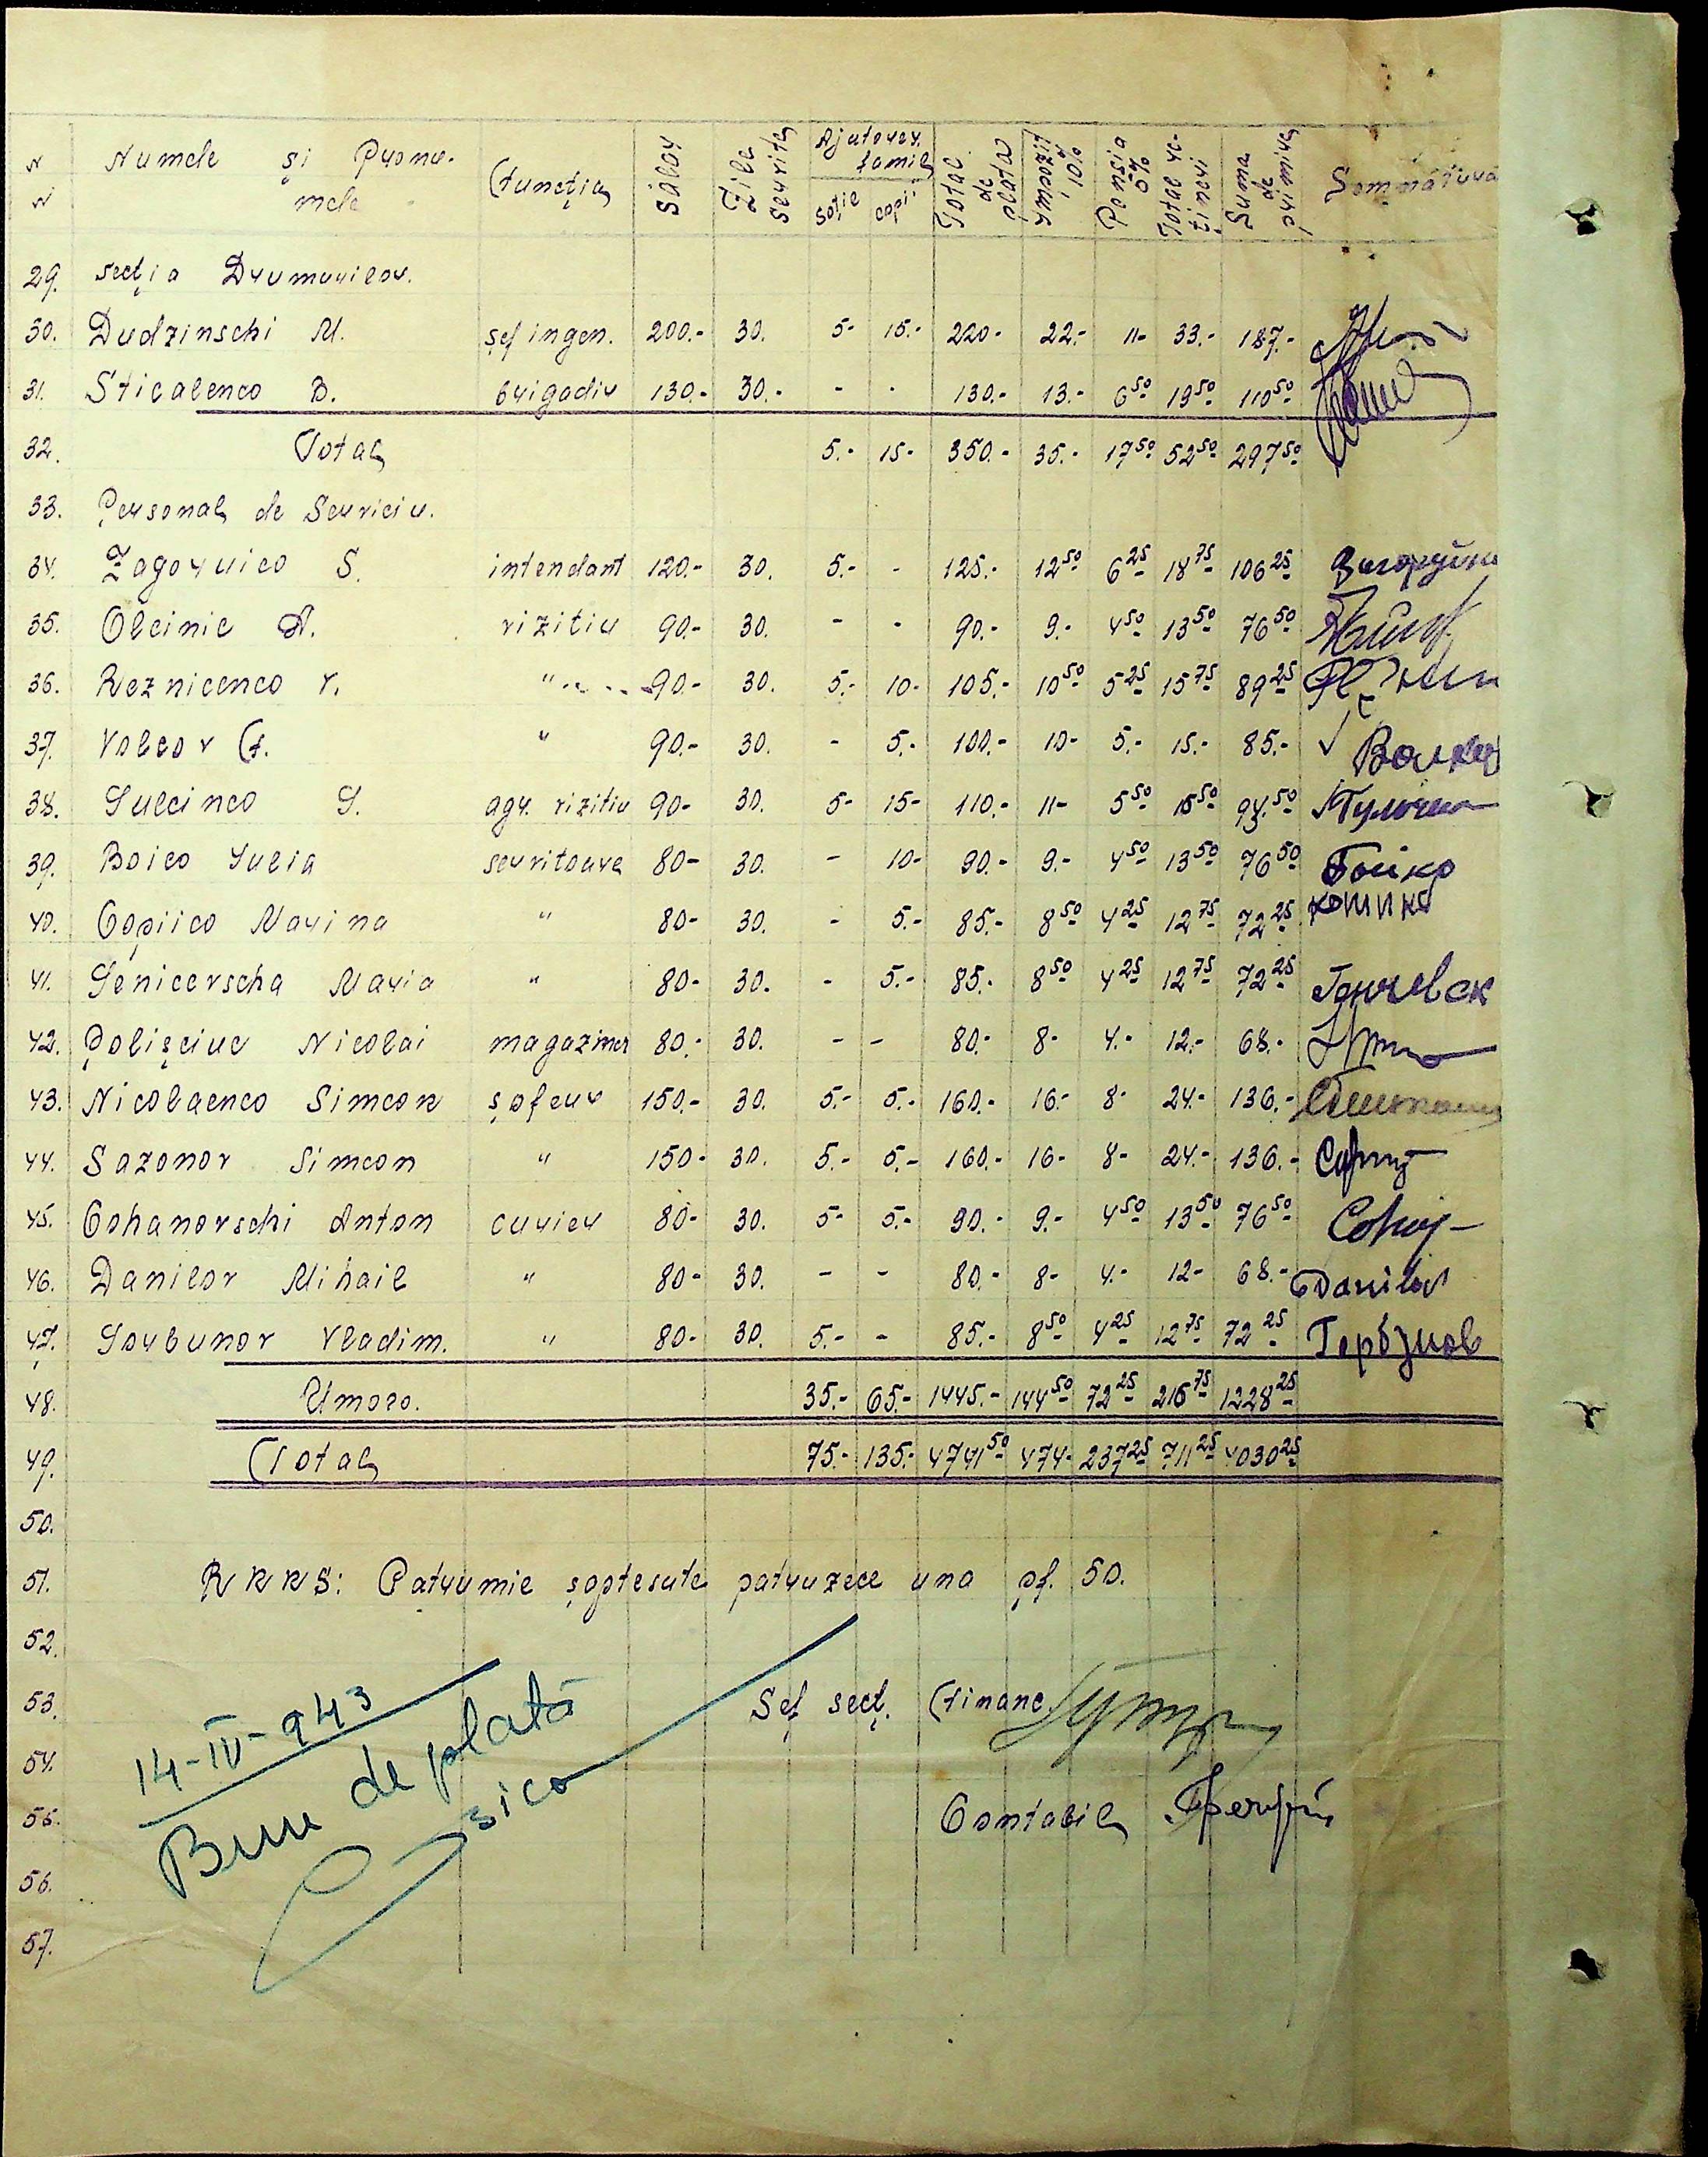 N N Numele și Pronumele Funcția Salar Zile servite Ajutorer. famil soție copii Total de plata Impozit 10% Pensia 5% Total rețineri Suma de primire Semnătura
29. Secția Drumurilor.
30. Dudzinschi M. șef ingen. 200.- 30. 5- 15.- 220- 22.- 11- 33.- 187.-
31. Sticalenco D. brigadir 130.- 30.- - - 130.- 13.- 6 50 19 50 110 50
32. Total 5.- 15- 350.- 35.- 17 50 52 50 297 50
33. Personal de Serviciu.
34. Zagoruico S. intendant 120.- 30. 5.- - 125.- 12 50 6 25 18 75 106 25
35. Olcinic A. vizitiu 90.- 30. - - 90.- 9.- 4 50 13 50 76 50
36. Reznicenco V. " 90.- 30. 5.- 10- 105.- 10 50 5 25 15 75 89 25
37. Volcov F. " 90.- 30. - 5.- 100.- 10- 5.- 15.- 85.- ✓ Волков
38. Gulcinco G. agr. vizitiu 90- 30. 5- 15- 110.- 11- 5 50 16 50 93 50
39. Boico Iulia servitoare 80- 30. - 10- 90.- 9.- 4 50 13 50 76 50 Бойко
40. Copiico Marina " 80- 30. - 5.- 85.- 8 50 4 25 12 75 72 25
41. Genicevscha Maria " 80- 30. - 5.- 85.- 8 50 4 25 12 75 72 25
42. Polișciuc Nicolai magaziner 80.- 30. - - 80.- 8- 4.- 12.- 68.-
43. Nicolaenco Simeon șofeur 150.- 30. 5.- 5.- 160.- 16.- 8- 24.- 136.-
44. Sazonov Simeon " 150- 30. 5.- 5.- 160.- 16- 8- 24.- 136.-
45. Cohanovschi Anton curier 80- 30. 5- 5.- 90.- 9.- 4 50 13 50 76 50
46. Danilov Mihail " 80- 30. - - 80.- 8- 4.- 12- 68.- Danilov
47. Gorbunov Vladim. " 80- 30. 5.- - 85.- 8 50 4 25 12 75 72 25 Горбунов
48. Итого. 35.- 65.- 1445.- 144 50 72 25 216 75 1228 25
49. Total 75.- 135.- 4741 50 474- 237 25 711 25 4030 25
50.
51. RKKS: Patrumie șaptesute patruzece una pf. 50.
52.
53. Șef secț. Financ.
54.
55. Contabil
56.
57.
14-IV-943
Bun de plată